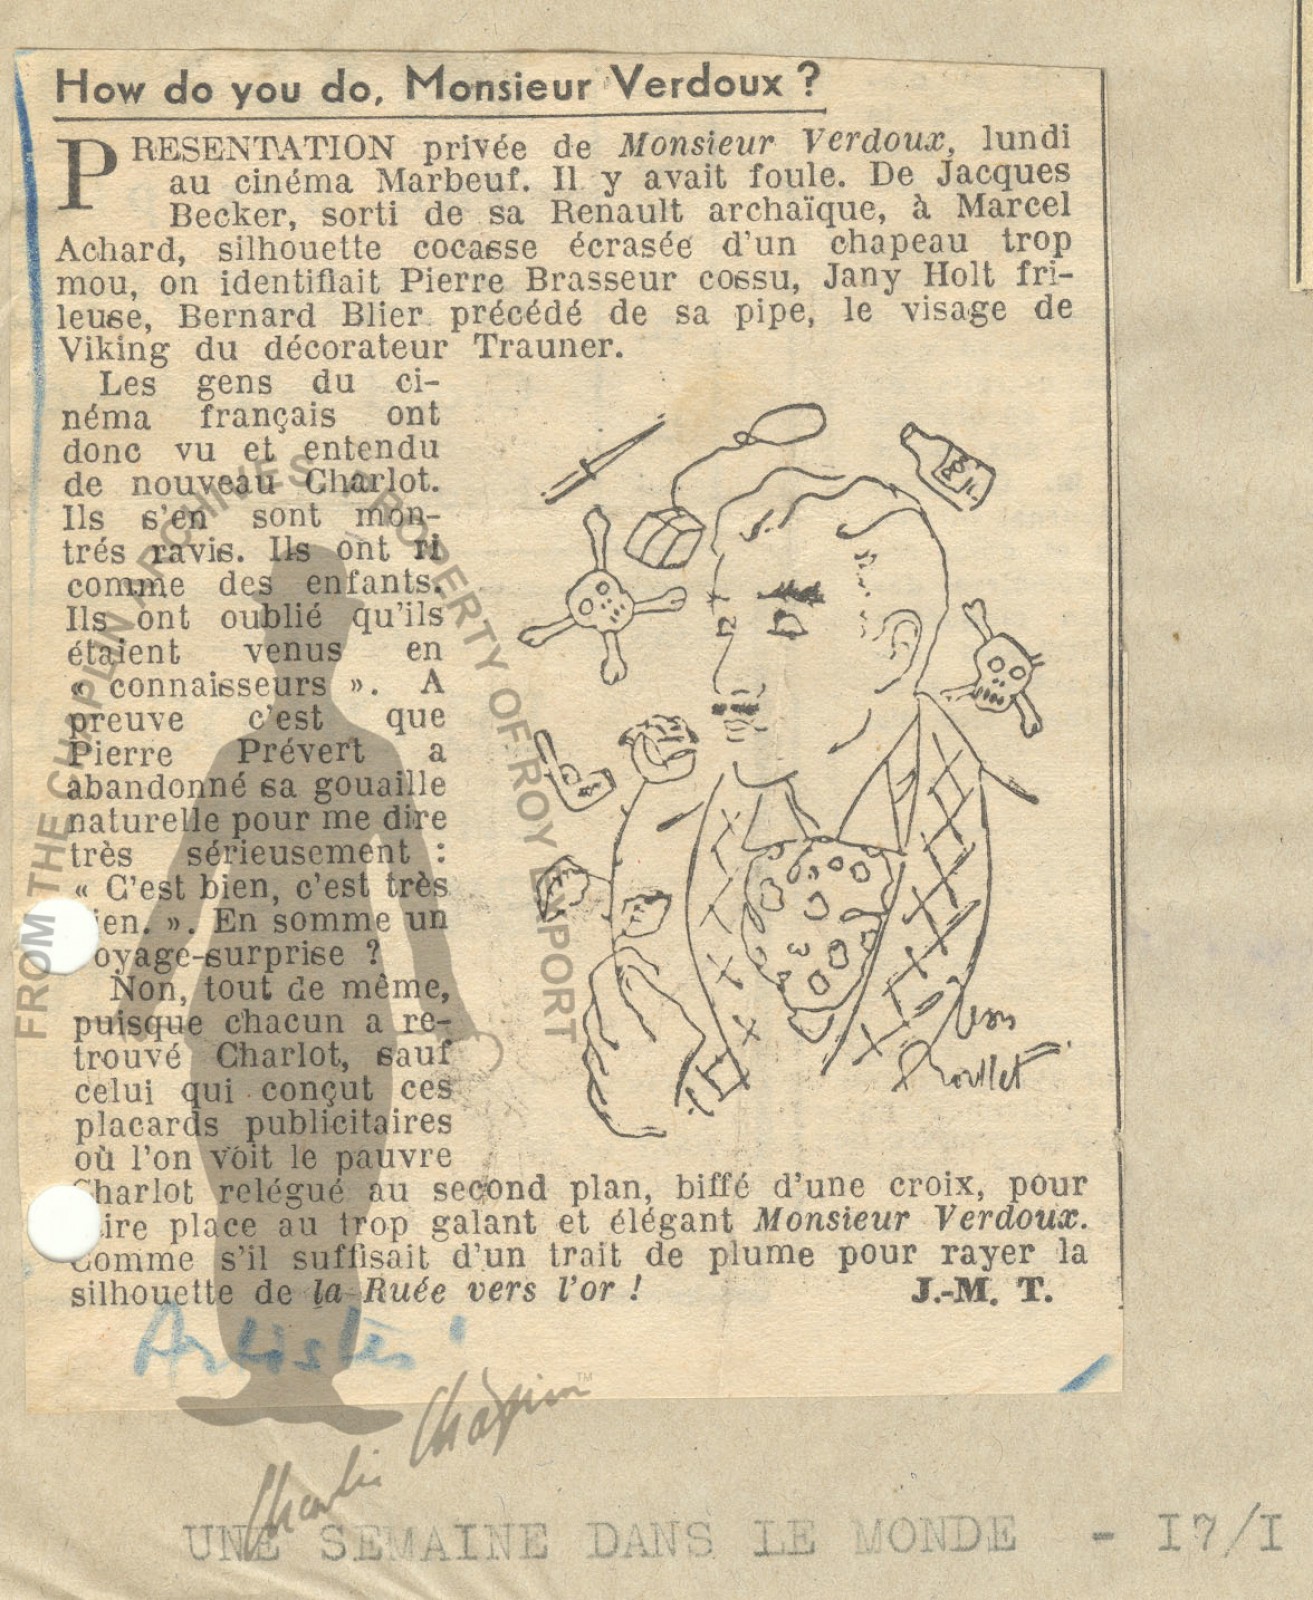 How do you do, Monsieur Verdoux ?
PRESENTATION privée de Monsieur Verdoux, lundi
au cinéma Marbeuf. Il y avait foule. De Jacques
Becker, sorti de sa Renault archaïque, à Marcel
Achard, silhouette cocasse écrasée d'un chapeau trop
mou, on identifiait Pierre Brasseur cossu, Jany Holt fri-
leuse, Bernard Blier précédé de sa pipe, le visage de
Viking du décorateur Trauner.
Les gens du ci-
néma français ont
donc vu et entendu
de nouveau Charlot.
Ils s'en sont mon-
trés ravis. Ils ont ri
comme des enfants.
Ils ont oublié qu'ils
étaient venus en
« connaisseurs ». A
preuve c'est que
Pierre Prévert a
abandonné sa gouaille
naturelle pour me dire
très sérieusement :
« C'est bien, c'est très
ien. ». En somme un
oyage-surprise ?
Non, tout de même,
puisque chacun a re-
trouvé Charlot, sauf
celui qui conçut ces
placards publicitaires
où l'on voit le pauvre
Charlot relégué au second plan, biffé d'une croix, pour
ire place au trop galant et élégant Monsieur Verdoux.
Comme s'il suffisait d'un trait de plume pour rayer la
silhouette de la Ruée vers l'or !
J.-M. T.
Artistes
FROM THE CHAPLIN ARCHIVES PROPERTY OF ROY EXPORT
Charlie Chaplin™
UNE SEMAINE DANS LE MONDE - I7/I